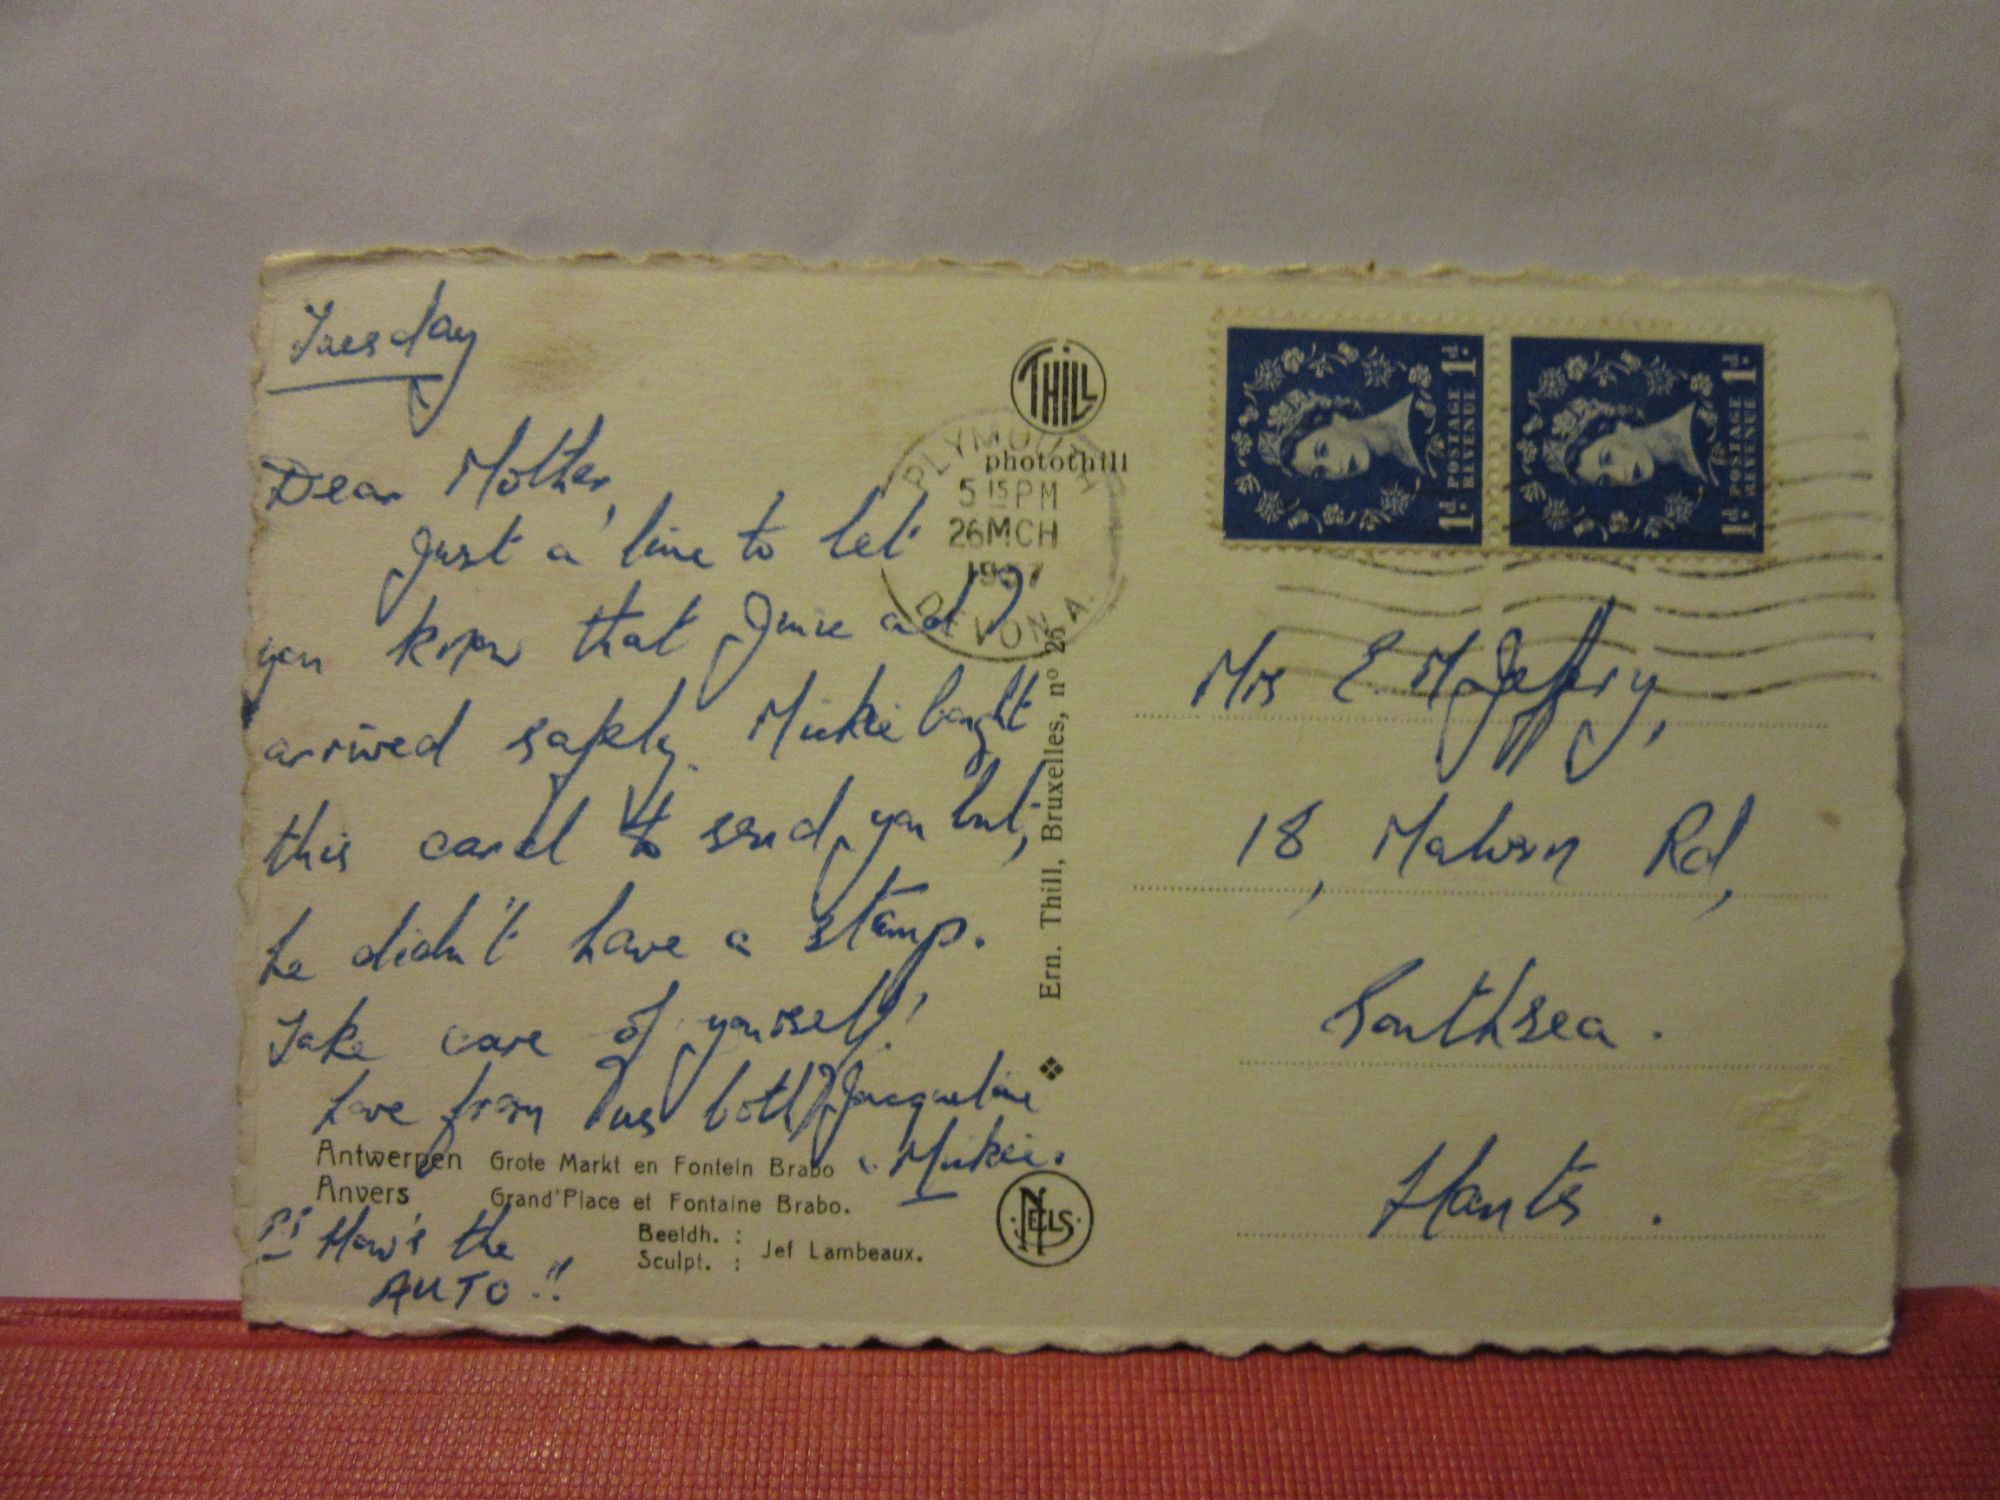 Tuesday
Dear Mother,
Just a line to let
you know that Junie and I
arrived safely. Mickie bought
this card to send you but,
he didn't have a stamp.
Take care of yourself!
Love from us both, Jacqueline
& Mickie.
PS How's the
AUTO !!
Antwerpen Grote Markt en Fontein Brabo
Anvers Grand'Place et Fontaine Brabo.
Beeldh. :
Sculpt. : Jef Lambeaux.
THILL
photothill
PLYMOUTH
5 15 PM
26 MCH
1957
DEVON. A.
Ern. Thill, Bruxelles, nº 25
NELS
1d. POSTAGE REVENUE 1d.
1d. POSTAGE REVENUE 1d.
Mrs E. Jeffery,
18, Rd,
Southsea.
Hants.